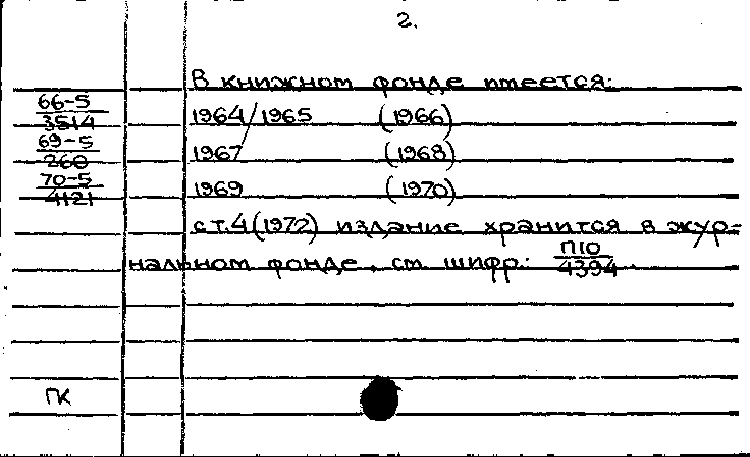 2.
В книжном фонде имеется:
66-5
3514 1964/1965 (1966)
69-5
260 1967 (1968)
70-5
4121 1969 (1970)
с т.4 (1972) издание хранится в жур-
нальном фонде, см. шифр: П10
4394.
ГК